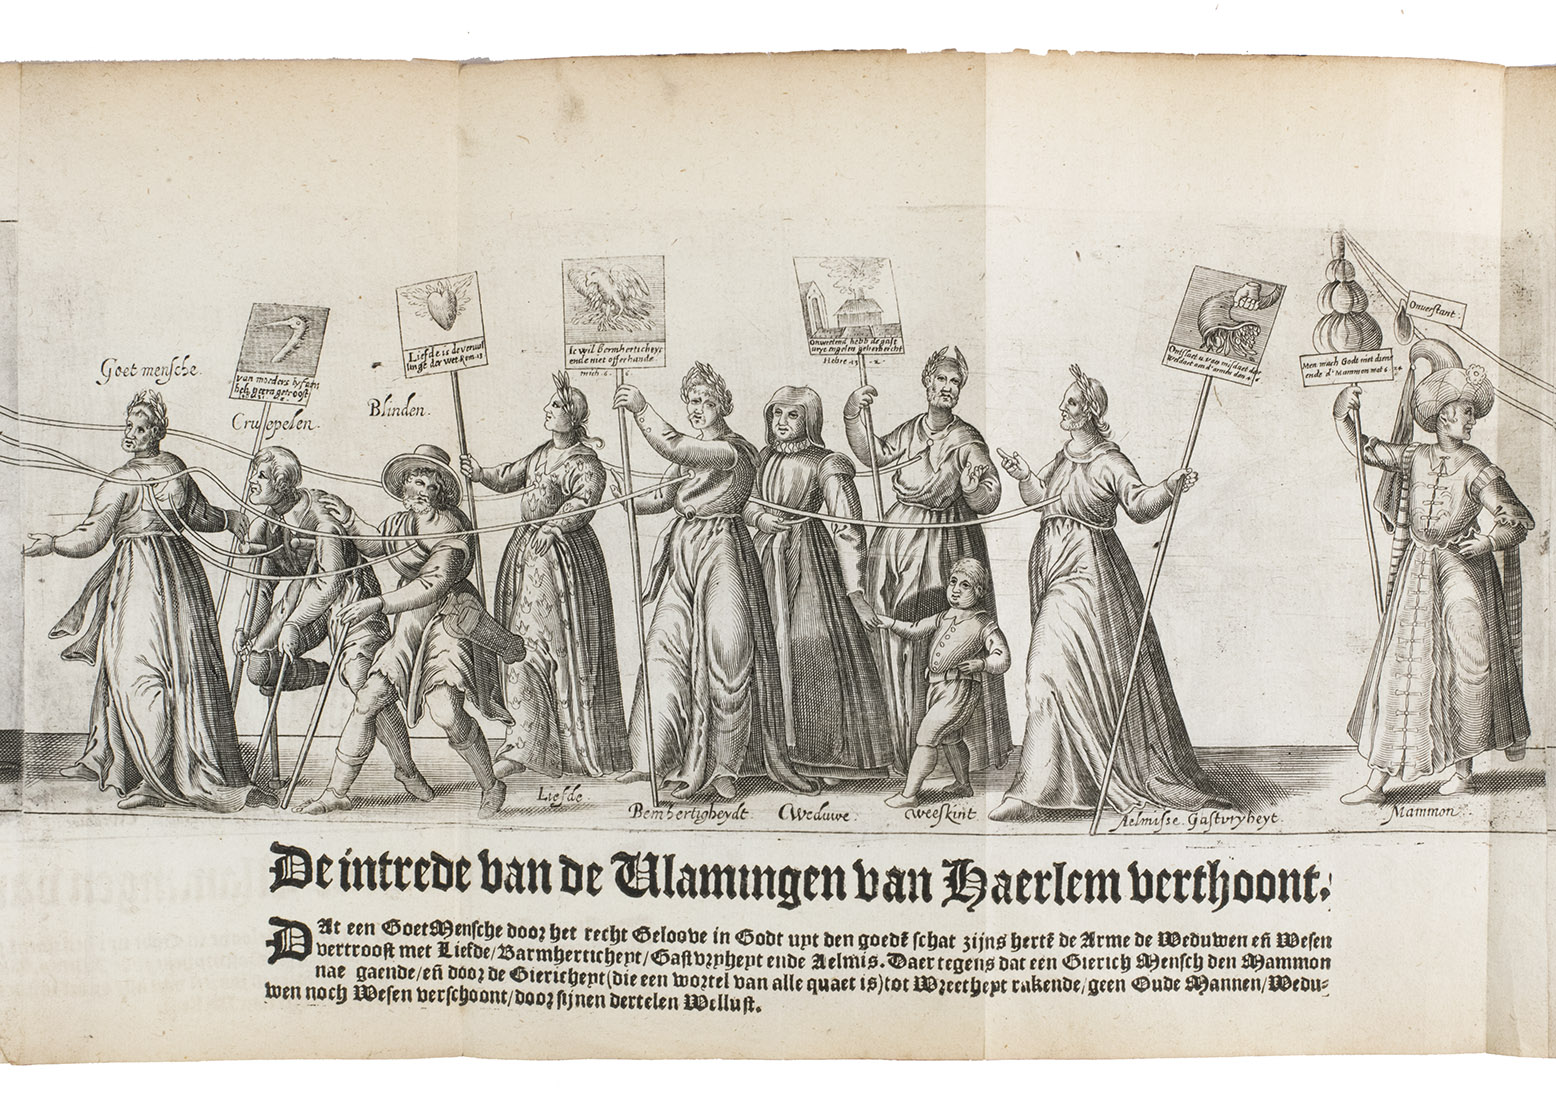 Goet mensche.
van moeders lyf aen
heb
getroost
Crueepelen.
Blinden.
Liefde is de vervul
lingt der wet Rom 13
Ic wil Bermherticheyt
ende niet offerhande.
Onwetend hebb de gast
vrye engelen geherbercht
Hebre 13 - 2.
Men mach Godt niet diene
ende de Mammon mat 6 24
Onverstant.
Liefde.
Bemhertigheydt.
Weduwe.
weeskint
Aelmisse. Gastvryheyt.
Mammon.
De intrede van de Vlamingen van Haerlem verthoont.
DAt een GoetMensche door het recht Geloove in Godt uyt den goedē schat zijns hertē de Arme de Weduwen eñ Wesen
vertroost met Liefde/Barmherticheyt/Gastvryheyt ende Aelmis. Daer tegens dat een Gierich Mensch den Mammon
nae gaende/eñ door de Giericheyt(die een wortel van alle quaet is)tot Wreetheyt rakende/geen Oude Mannen/Wedu-
wen noch Wesen verschoont/door sijnen dertelen Wellust.